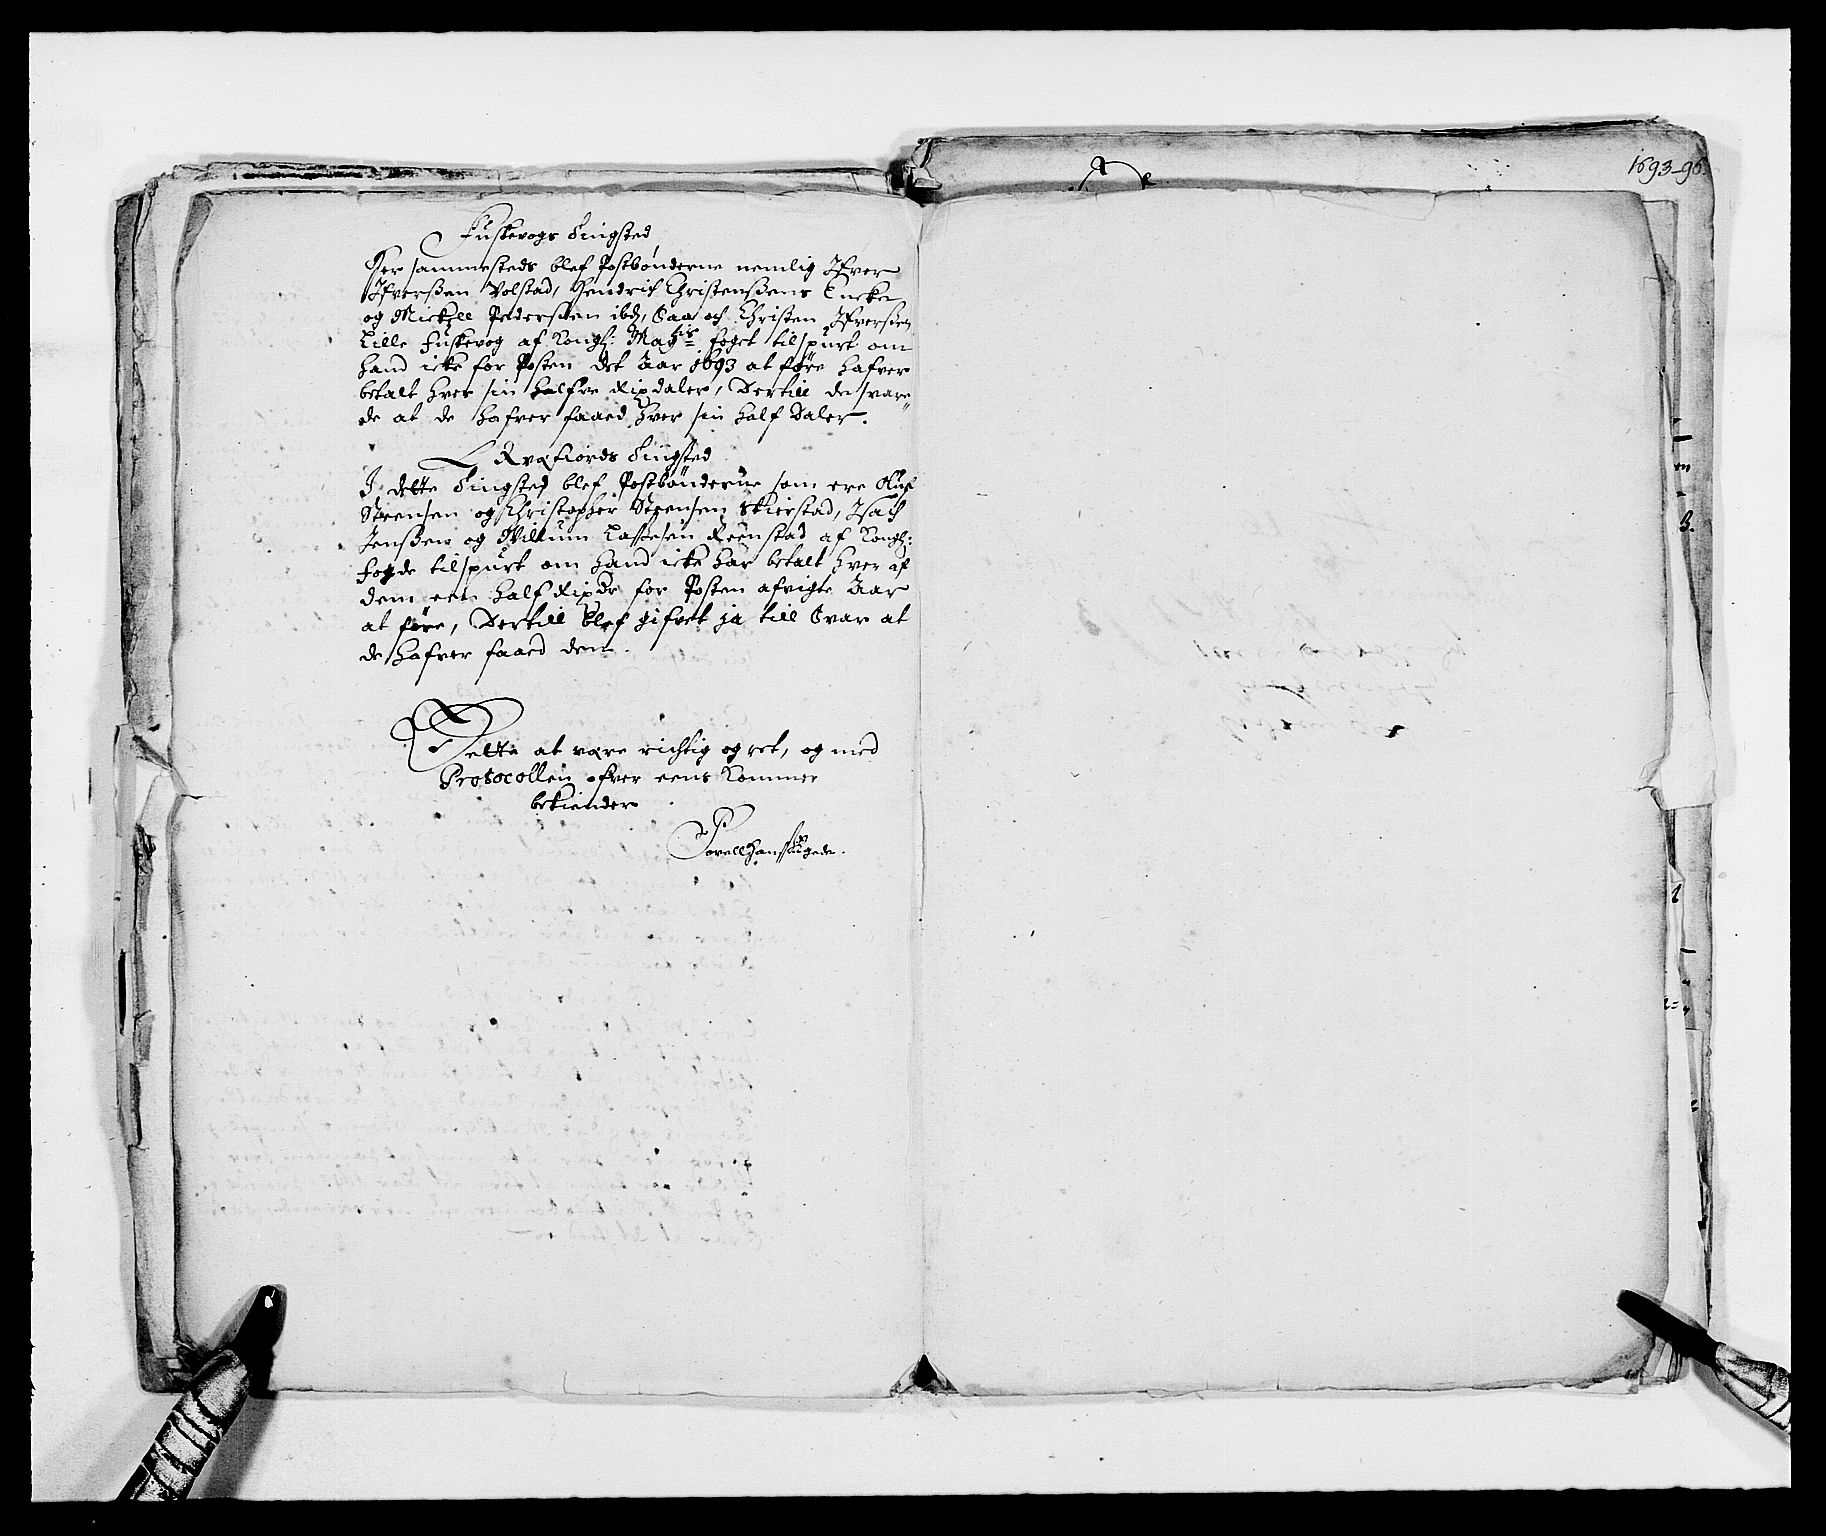 Fuskevogs Tingsted
Her sammesteds blef Postbønderne nemlig Ifver
Ifverssen Volstad, Hendrich Christenssens Encke
og Mickell Pederssen ibd, Saa och Christen Ifverssen
Lille Fuskevog af Kongl: Maytz Foget tilspurt om
hand icke for Posten det Aar 1693 at føre hafver
betalt hver sin halfve Rixdaler, Dertill de svare=
de at de hafver faaed hver sin half Daler.
Qvæfiords Tingsted
I dette Tingsted blef Postbønderne som ere Oluf
Steensen og Christopher Steensen Skierstad, Isach
Jenssen og Willum Lassesen Reenstad af Kongl:
Fogde tilspurt om hand icke har betalt hver af
dem een half Rixdr for Posten afvigte Aar
at føre, Dertill blef gifvet ja till Svar at
de hafver faaed dem.
Dette at være richtig og ret, og med
Protocollen ofver eens kommer
bekiender
Povell Hanss Egede.
1693-96.